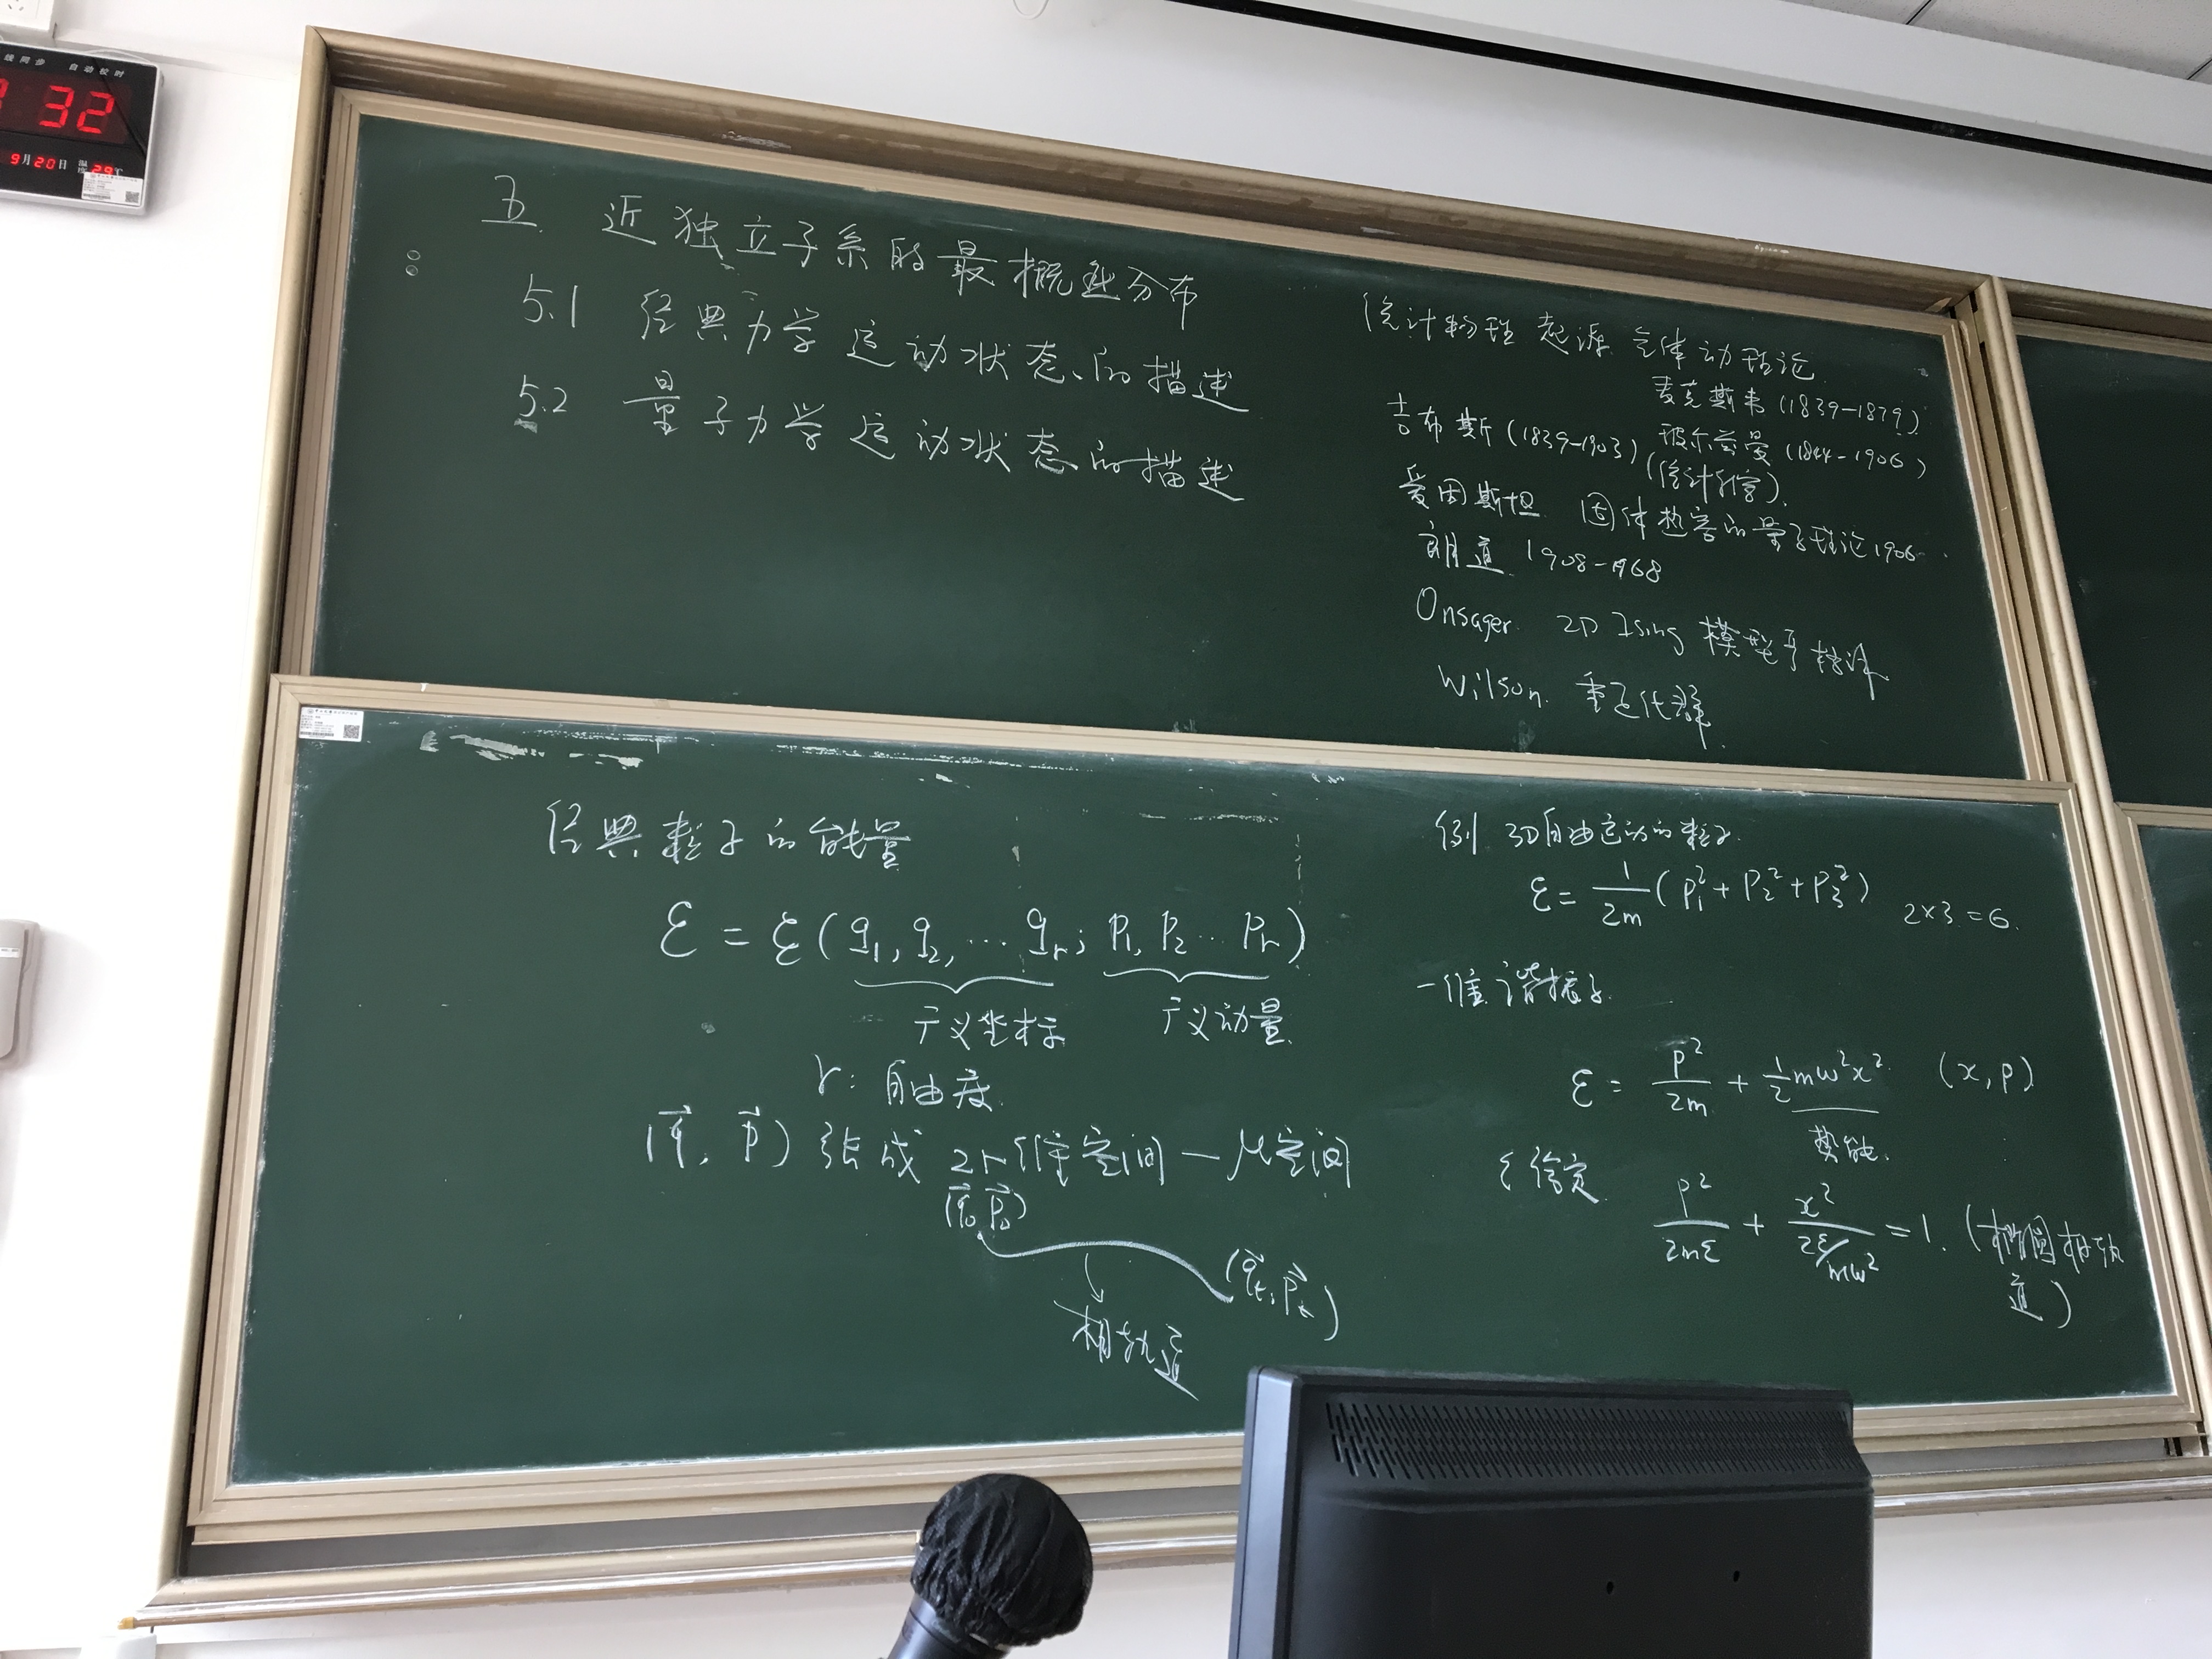 线同步 自动校时
32
9月20日 温度 29℃
五 近独立子系的最概然分布
5.1 经典力学运动状态的描述
5.2 量子力学运动状态的描述
统计物理起源 气体动理论
麦克斯韦 (1839-1879)
吉布斯 (1839-1903) 玻尔兹曼 (1844-1906)
(统计系综)
爱因斯坦 固体热容的量子理论 1906
朗道 1908-1968
Onsager 2D Ising 模型严格解
Wilson 重正化群
经典粒子的能量
ε = ε(q₁, q₂, … qᵣ; p₁, p₂ … pᵣ)
广义坐标 广义动量
r: 自由度
(q⃗, p⃗) 张成 2r维空间 — μ空间
(q⃗₀, p⃗₀)
(q⃗ₜ, p⃗ₜ)
相轨道
例 3D自由运动的粒子
ε = 1/2m (p₁² + p₂² + p₃²) 2×3=6
一维谐振子
ε = p²/2m + 1/2 mω²x² (x, p)
势能
ε给定 p²/2mε + x²/(2ε/mω²) = 1. (椭圆相轨道)